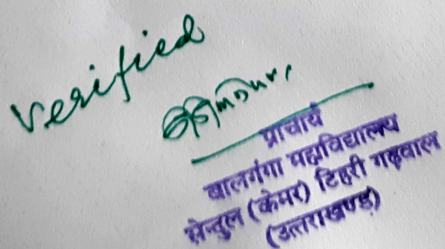 verified
प्राचार्य
बालगंगा महाविद्यालय
सेन्दुल (केमर) टिहरी गढ़वाल
(उत्तराखण्ड)